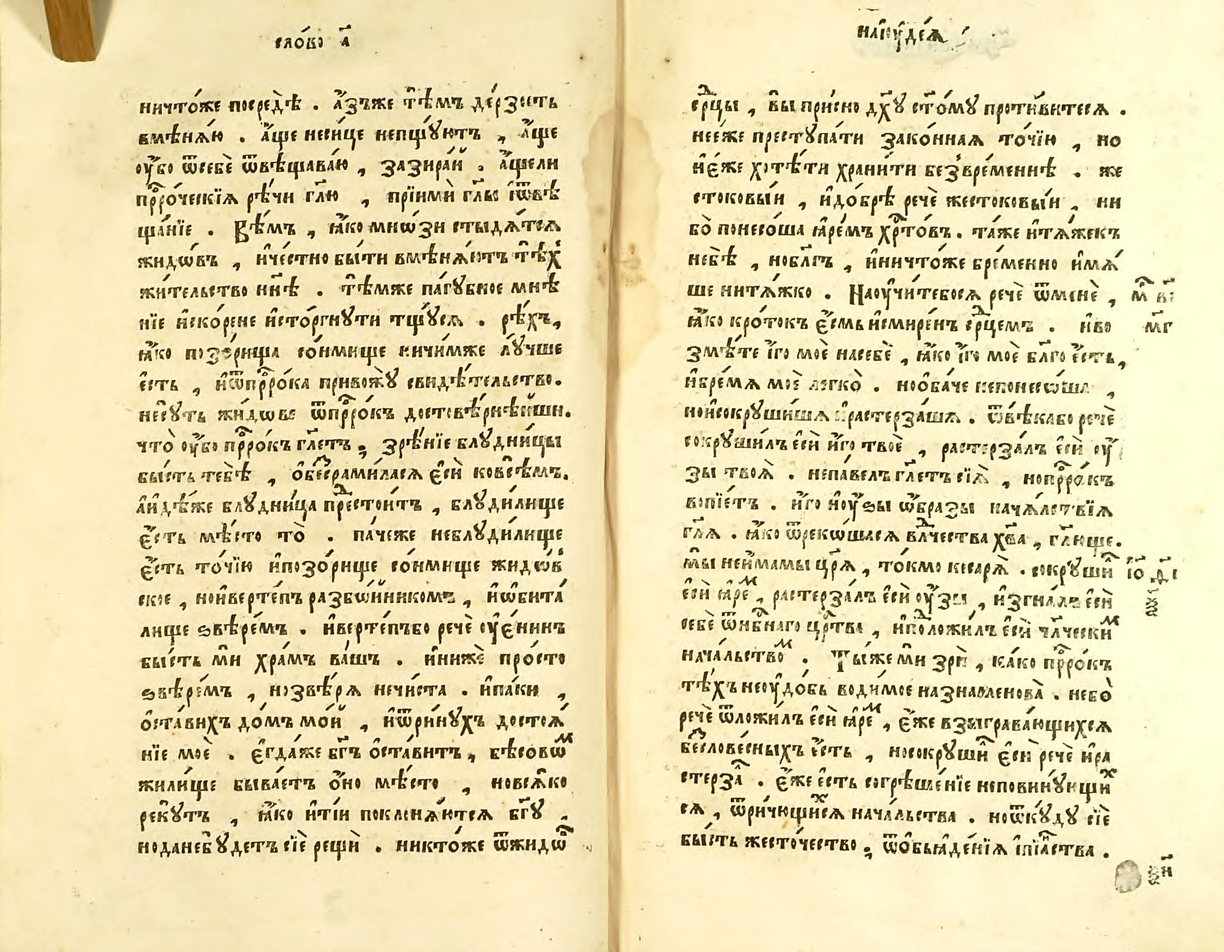 сло́во а҃
ничто́же посредѣ̀ . а҆́зъже тѣ́мъ де́рзость
вмѣнѧ́ю . а҆́ще несице непщꙋ́ютъ , а҆́ще
ᲂу҆́бо ѿсебѐ ѿвѣщава́ю , зазира́й . а҆́щели
прⷪ҇ро́ческїѧ рѣ́чи гл҃ю , прїимѝ гл҃ы і҆ѿвѣ
ща́нїе . Вѣ́мъ , ꙗ҆́ко мно́ѕи стыдѧ́тсѧ
жидѡ́въ , и҆че́стно бы́ти вмѣнѧ́ютъ тѣ́хъ
жи́тельство нн҃ѣ . тѣ́мже па́гꙋбное мнѣ
нїе и҆ско́рене и҆сто́ргнꙋти тщꙋ́сѧ . рѣ́хъ,
ꙗ҆́ко позо́рища со́нмище ничи́мже лꙋ́чше
є҆́сть , и҆ѿпрⷪ҇ро́ка привожꙋ̀ свидѣ́тельство.
несꙋ́ть жидо́ве ѿпрⷪ҇ро́къ достовѣ́рнѣйши.
что̀ ᲂу҆́бо прⷪ҇ро́къ гл҃етъ ; зрѣ́нїе блꙋдни́цы
бы́сть тебѣ̀ , ѡ҆бесра́миласѧ є҆сѝ ковсѣ́мъ.
а҆и҆дѣ́же блꙋдни́ца престои́тъ , блꙋди́лище
є҆́сть мѣ́сто то̀ . па́чеже неблꙋди́лище
є҆́сть то́чїю и҆позо́рище со́нмище жидѡ́в
ское , нои҆верте́пъ разбо́йникомъ , и҆ѡ҆бита́
лище ѕвѣре́мъ . и҆верте́пъбо рече ᲂу҆є҆ни́нъ
бы́сть мѝ хра́мъ ва́шъ . и҆нижѐ про́сто
ѕвѣре́мъ , ноѕвѣ́рѧ нечи́ста . и҆па́ки ,
ѡ҆ста́вихъ до́мъ мо́й , и҆ѿри́нꙋхъ досто́ѧ
нїе моѐ . є҆гда́же бг҃ъ ѡ҆ста́витъ , бѣсовѡⷨ
жили́ще быва́етъ ѻ҆́но мѣ́сто , новсѧ́ко
рекꙋ́тъ , ꙗ҆́ко и҆ті́и поклонѧ́ютсѧ бг҃ꙋ .
нода́небꙋ́детъ сїѐ рещѝ . никто́же ѿжидѡ́в
наі҆ꙋде́ѧ
є҆рⷣцы , вы̀ при́сно дх҃ꙋ ст҃о́мꙋ проти́витесѧ .
нее́же престꙋпа́ти зако́ннаѧ то́чїю , но
и҆є҆́же хотѣ́ти храни́ти безвре́меннѣ . же
стоковы́и , и҆добрѣ̀ речѐ жестоковы́и , ни
бо̀ понесо́ша ꙗ҆ре́мъ хрⷭ҇то́въ . та́же и҆тѧ́жекъ
небѣ̀ , нобл҃гъ , и҆ничто́же бре́менно и҆мѧ́
ше нитѧ́жко . Наᲂу҆чи́тебосѧ речѐ ѿменѐ ,
ꙗ҆́ко кро́токъ є҆́смь и҆смире́нъ срⷣцемъ . и҆во
змѣ́те и҆́го моѐ насебѐ , ꙗ҆́ко и҆́го моѐ бл҃го є҆́сть,
и҆бре́мѧ моѐ легко̀ . нооба́че непонесо́ша ,
нои҆сокрꙋши́ша и҆растерза́ша . ѿвѣ́кабо речѐ
сокрꙋши́лъ є҆сѝ и҆́го твоѐ , растерза́лъ є҆сѝ ᲂу҆́
зы твоѧ̀ . непа́велъ гл҃етъ сїѧ̀ , нопрⷪ҇ро́къ
вопїе́тъ . и҆́го и҆ᲂу҆́зы ѡ҆́бразы нача́лствїѧ
гл҃ѧ . ꙗ҆́ко ѿреко́шасѧ влⷣчества хв҃а , гл҃юще.
мы̀ неи҆́мамы цр҃ѧ̀ , то́кмо ке́сарѧ . сокрꙋши́лъ
є҆сѝ ꙗ҆ре́ⷨ , растерза́лъ є҆сѝ ᲂу҆́зы , и҆згна́лъ є҆сѝ
себѐ ѿнбⷭ҇наго црⷭ҇тва , и҆положи́лъ є҆сѝ чл҃чески́ⷨ
нача́льствоⷨ . Ты́же мѝ зрѝ , ка́ко прⷪ҇ро́къ
тѣ́хъ неᲂу҆до́бь води́мое назна́менова . небо̀
речѐ ѿложи́лъ є҆сѝ ꙗ҆ре́ⷨ , є҆́же взыгра́вающихсѧ
бесловесныхъ є҆́сть , носокрꙋши́л є҆сѝ речѐ и҆ра
стерза́л . є҆́же є҆сть согрѣше́нїе неповинꙋ́ющиⷯ
сѧ , ѿричю́щисѧ нача́льства . ноѿкꙋ́дꙋ сїѐ
бы́сть жесто́чество ; ѿѡ҆бьꙗде́нїѧ і҆пїѧ́нства .